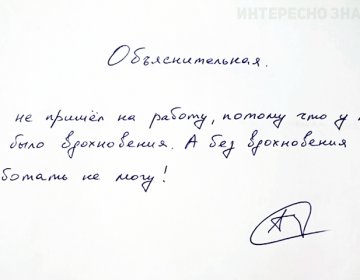 ИНТЕРЕСНО ЗНА
Объяснительная.
не пришёл на работу, потому что у
было вдохновения. А без вдохновения
ботать не могу!